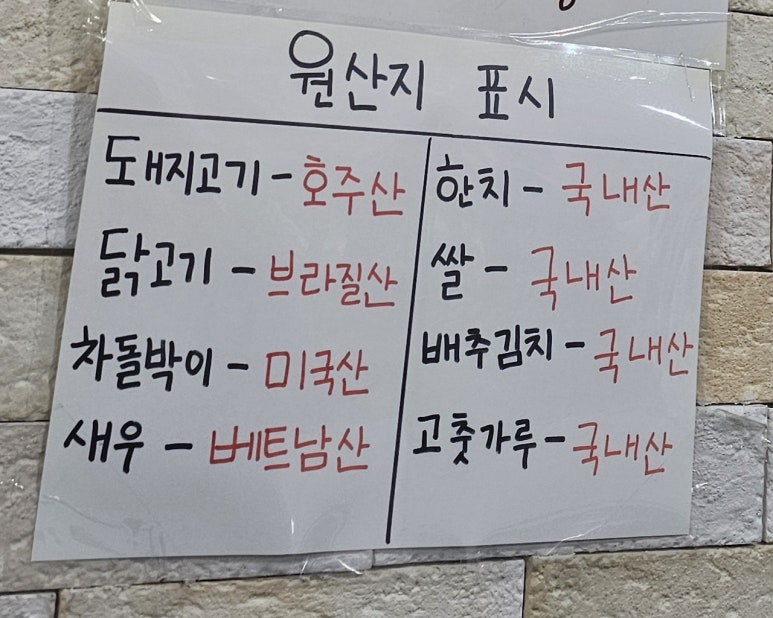 원산지 표시
돼지고기 - 호주산
닭고기 - 브라질산
차돌박이 - 미국산
새우 - 베트남산
한치 - 국내산
쌀 - 국내산
배추김치 - 국내산
고춧가루 - 국내산